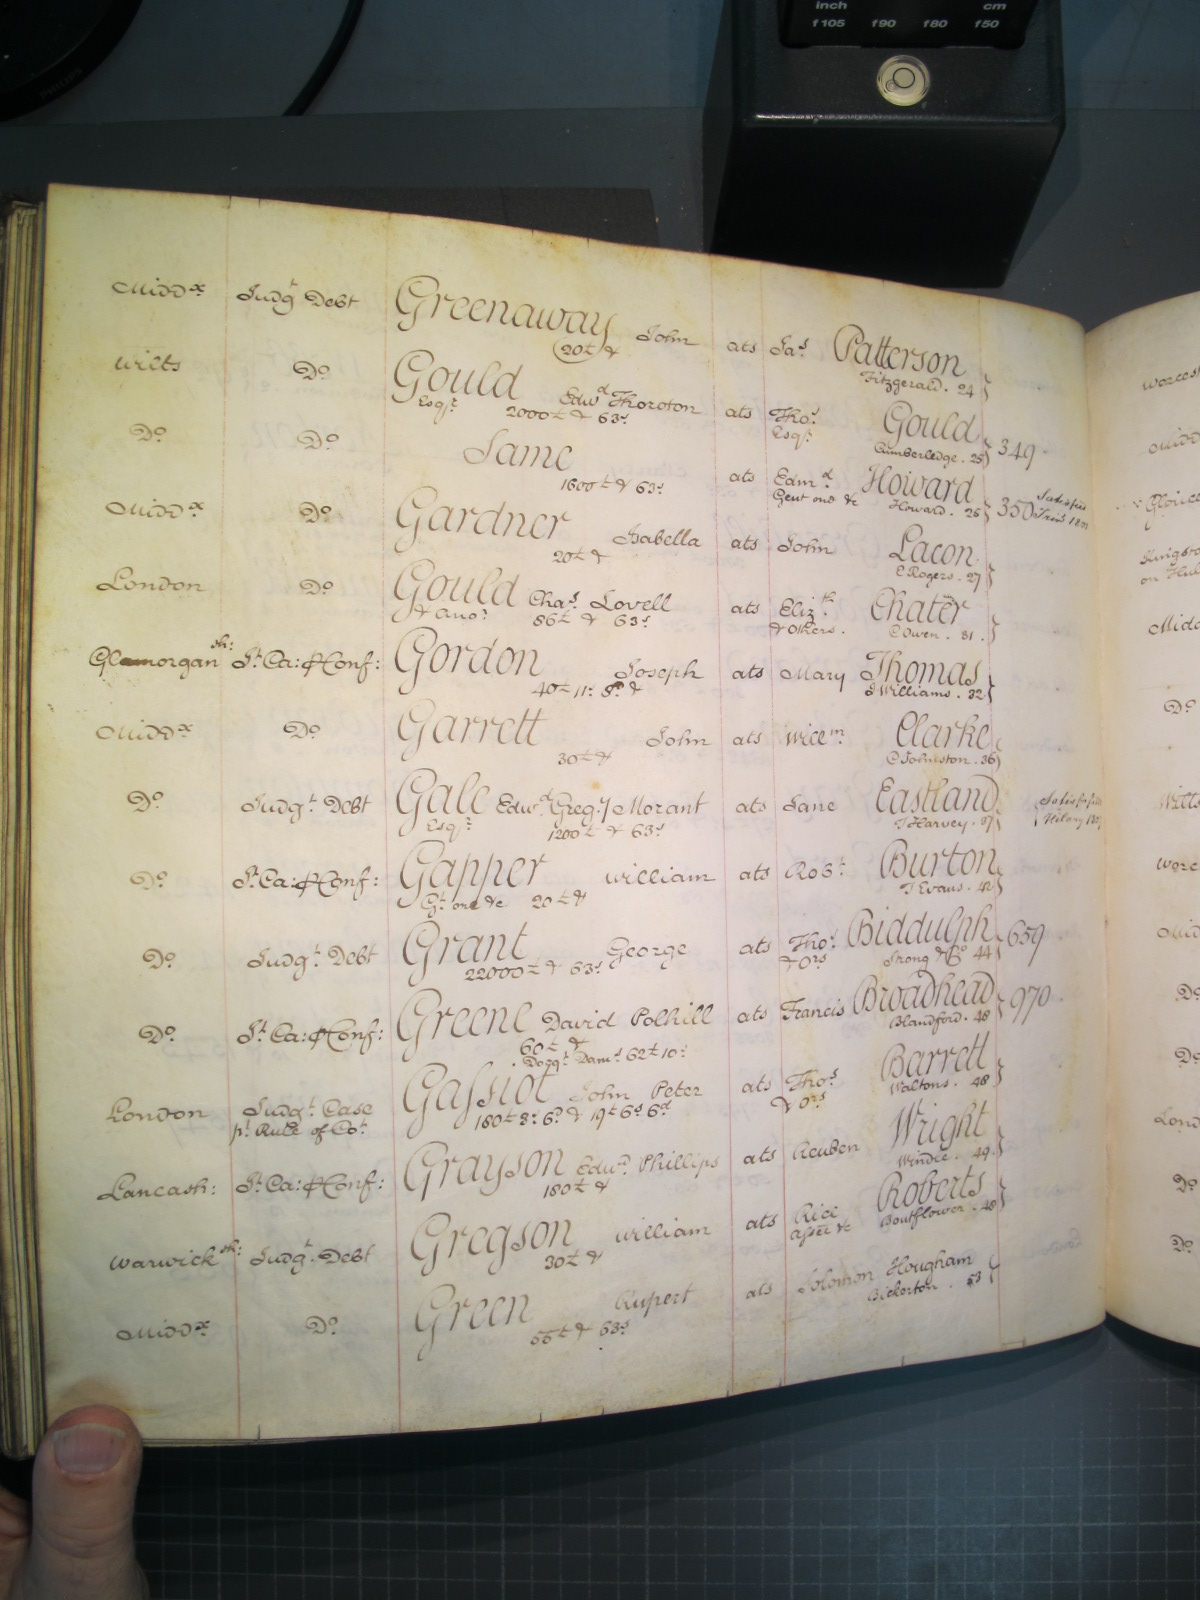 inch cm
f105 f90 f80 f50
PHILIPS
Midd.x Judg.t Debt Greenaway John ats Ja.s Patterson
20£ & Fitzgerald. 24
Wilts D.o Gould Edw.d Thoroton ats Tho.s Gould 349
Esq.r 2000£ & 63.s Esq.r Cumberledge. 25
D.o D.o Same ats Edm.d Howard 350 Satisfied
1600£ & 63.s Gent one &c Howard. 25
Midd.x D.o Gardner Isabella ats John Lacon
20£ & E Rogers. 27
London D.o Gould Cha.s Lovell ats Eliz.th Chater
& ano.r 86£ & 63.s & others. C Owen. 31.
Glamorgan sh: J.t Ca: & Conf: Gordon Joseph ats Mary Thomas
40£ 11: 8.d & J Williams. 32
Midd.x D.o Garrett John ats Will.m Clarke
30£ & C Johnston. 36
D.o Judg.t Debt Gale Edw.d Greg.y Morant ats Jane Eastland Satisfied
Esq.r 1200£ & 63.s T Harvey. 37 Hilary
D.o J.t Ca: & Conf: Gapper William ats Rob.t Burton
G.t one &c 20£ & T Evans. 42
D.o Judg.t Debt Grant George ats Tho.s Biddulph 659
22000£ & 63.s & o.rs Strong & Co 44
D.o J.t Ca: & Conf: Greene David Polhill ats Francis Broadhead 970
60£ & Blandford. 48
Do Judg.t Dam.s 62£ 10.s
London Judg.t Case Gassiot John Peter ats Tho.s Barrett
p.r Rule of Co.t 180£ 3: 6.d & 19£ 6s 6d & o.rs Waltons. 48
Lancash: J.t Ca: & Conf: Grayson Edw.d Phillips ats Reuben Wright
180£ & Windle. 49
Warwick sh: Judg.t Debt Gregson William ats Rice Roberts
30£ & assee &c Boutflower. 49
Midd.x D.o Green Rupert ats Solomon Hougham
56£ & 63.s Bickerton. 53